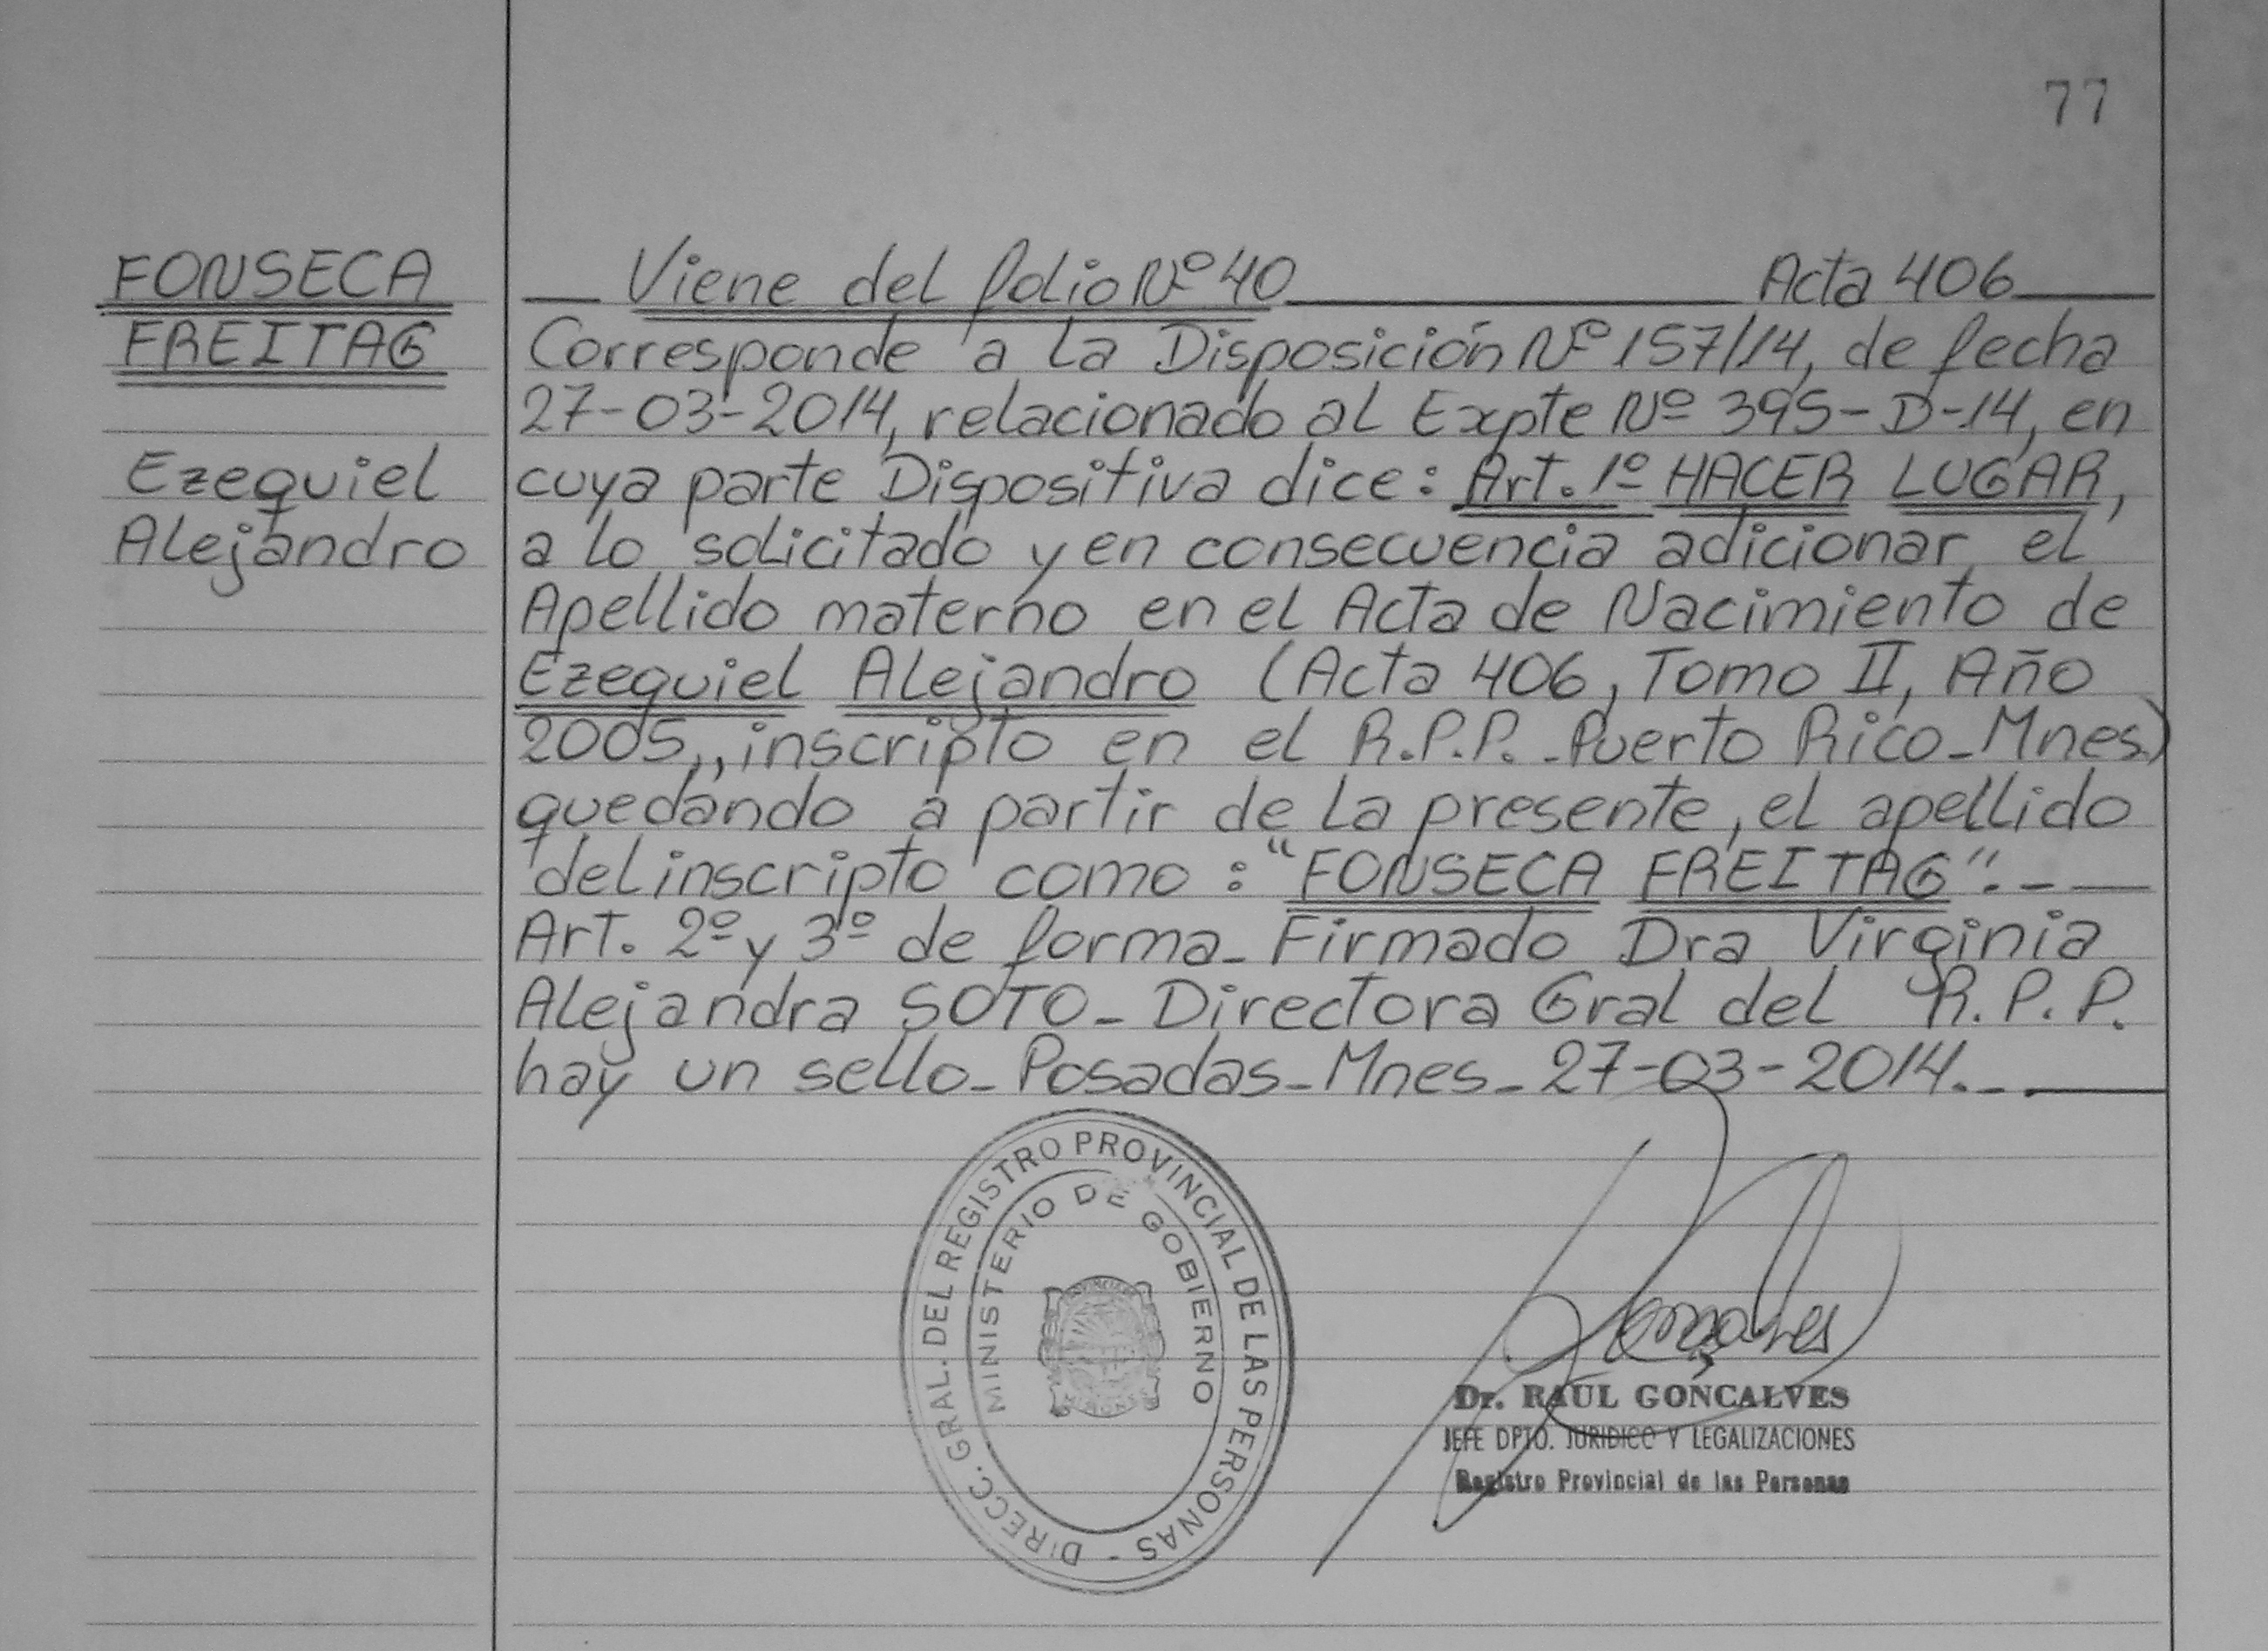 77
FONSECA
FREITAG
Ezequiel
Alejandro
Viene del folio Nº 40 Acta 406
Corresponde a la Disposición Nº 157/14, de fecha
27-03-2014, relacionado al Expte Nº 395-D-14, en
cuya parte Dispositiva dice: Art. 1º HACER LUGAR,
a lo solicitado y en consecuencia adicionar el
Apellido materno en el Acta de Nacimiento de
Ezequiel Alejandro (Acta 406, Tomo II, Año
2005,, inscripto en el R.P.P. - Puerto Rico - Mnes)
quedando a partir de la presente, el apellido
del inscripto como: "FONSECA FREITAG". -
Art. 2º y 3º de forma - Firmado Dra Virginia
Alejandra SOTO - Directora Gral del R.P.P.
hay un sello - Posadas - Mnes - 27-03-2014. -
DIRECC. GRAL. DEL REGISTRO PROVINCIAL DE LAS PERSONAS -
MINISTERIO DE GOBIERNO
Dr. RAUL GONÇALVES
JEFE DPTO. JURIDICO Y LEGALIZACIONES
Registro Provincial de las Personas